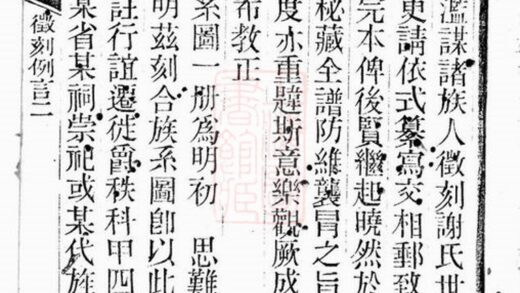 濫謀諸族人徵刻謝氏世
更請依式纂寫交相郵致
完本俾後賢繼起曉然於
秘藏全譜防維襲冒之旨
度亦重韙斯意樂觀厥成
布教正
系圖一册為明初 思難
明茲刻合族系圖卽以此
註行誼遷徙爵秩科甲四
某省某祠崇祀或某代旌
徵刻例言二